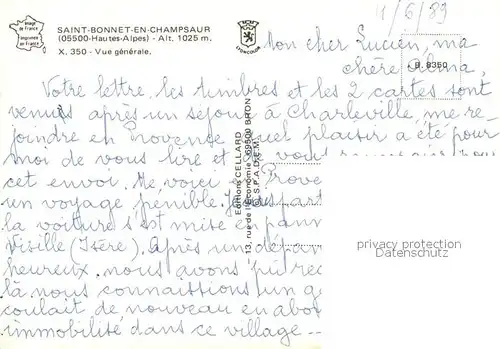 Image de France
Imprimée en France
SAINT-BONNET-EN-CHAMPSAUR
(05500-Hautes-Alpes) - Alt. 1025 m.
X. 350 - Vue générale.
LYONCOLOR
Editions CELLARD
13, rue de l'Economie - 69500 BRON
S.P.A.D.E.M.
B. 8350
1/6/89
Mon cher Lucien, ma
chère
Votre lettre, les timbres et les 2 cartes sont
venus après un séjour à Charleville, me re-
joindre en Provence. Quel plaisir a été pour
moi de vous lire et
cet envoi. Me voici en Prove
un voyage pénible.
la voiture s'est mise en pann
Vizille (Isère). Après un dépan
heureux, nous avons pu rec
là nous connaissions un g
coulait de nouveau en abo
immobilité dans ce village...
privacy protection
Datenschutz